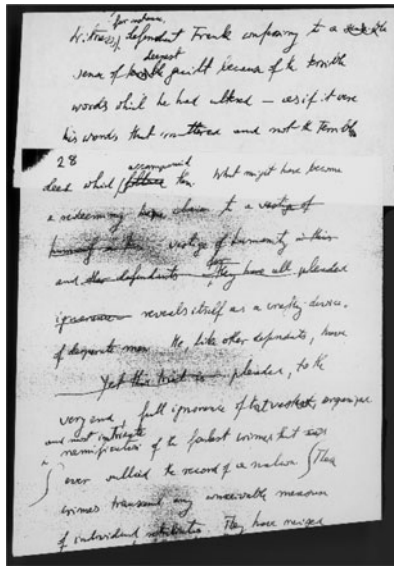 for instance,
Witness, defendant Frank confessing to a
deepest
sense of guilt because of the terrible
words which he had uttered — as if it were
his words that mattered and not the terrible
28
accompanied
deed which followed them. What might have become
a redeeming claim to a vestige of
vestige of humanity in this
and other defendants they have all pleaded
ignorance reveals itself as a crafty device
of desperate men. He, like other defendants, have
Yet this trial is pleaded, to the
very end, full ignorance of that vast organized
and most intricate
ramification of the foulest crimes that
ever sullied the record of a nation These
crimes transcend any conceivable measure
of individual retribution. They have